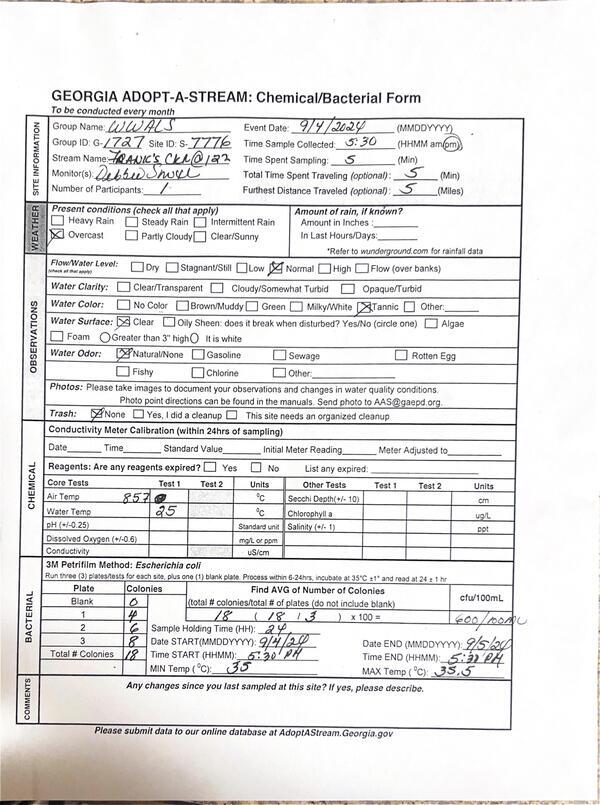 GEORGIA ADOPT-A-STREAM: Chemical/Bacterial Form
To be conducted every month
SITE INFORMATION
Group Name: WWALS Event Date: 9/4/2024 (MMDDYYYY)
Group ID: G-1727 Site ID: S-7776 Time Sample Collected: 5:30 (HHMM am/pm)
Stream Name: FRANK'S CKN@122 Time Spent Sampling: 5 (Min)
Monitor(s): Debbie Total Time Spent Traveling (optional): 5 (Min)
Number of Participants: 1 Furthest Distance Traveled (optional): 5 (Miles)
WEATHER
Present conditions (check all that apply) Amount of rain, if known?
Heavy Rain Steady Rain Intermittent Rain Amount in Inches :
Overcast Partly Cloudy Clear/Sunny In Last Hours/Days:
*Refer to wunderground.com for rainfall data
OBSERVATIONS
Flow/Water Level: Dry Stagnant/Still Low Normal High Flow (over banks)
(check all that apply)
Water Clarity: Clear/Transparent Cloudy/Somewhat Turbid Opaque/Turbid
Water Color: No Color Brown/Muddy Green Milky/White Tannic Other:
Water Surface: Clear Oily Sheen: does it break when disturbed? Yes/No (circle one) Algae
Foam Greater than 3" high It is white
Water Odor: Natural/None Gasoline Sewage Rotten Egg
Fishy Chlorine Other:
Photos: Please take images to document your observations and changes in water quality conditions.
Photo point directions can be found in the manuals. Send photo to AAS@gaepd.org.
Trash: None Yes, I did a cleanup This site needs an organized cleanup
CHEMICAL
Conductivity Meter Calibration (within 24hrs of sampling)
Date Time Standard Value Initial Meter Reading Meter Adjusted to
Reagents: Are any reagents expired? Yes No List any expired:
Core Tests Test 1 Test 2 Units Other Tests Test 1 Test 2 Units
Air Temp °C Secchi Depth(+/- 10) cm
Water Temp 25 °C Chlorophyll a ug/L
pH (+/-0.25) Standard unit Salinity (+/- 1) ppt
Dissolved Oxygen (+/-0.6) mg/L or ppm
Conductivity uS/cm
BACTERIAL
3M Petrifilm Method: Escherichia coli
Run three (3) plates/tests for each site, plus one (1) blank plate. Process within 6-24hrs, incubate at 35°C ±1° and read at 24 ± 1 hr
Plate Colonies Find AVG of Number of Colonies cfu/100mL
Blank 0 (total # colonies/total # of plates (do not include blank)
1 4 18 ( 18 / 3 ) x 100 = 600/100ML
2 6 Sample Holding Time (HH): 24
3 8 Date START(MMDDYYYY): 9/4/24 Date END (MMDDYYYY): 9/5/24
Total # Colonies 18 Time START (HHMM): 5:30 PM Time END (HHMM): 5:30 PM
MIN Temp (°C): 35 MAX Temp (°C): 35.5
COMMENTS
Any changes since you last sampled at this site? If yes, please describe.
Please submit data to our online database at AdoptAStream.Georgia.gov